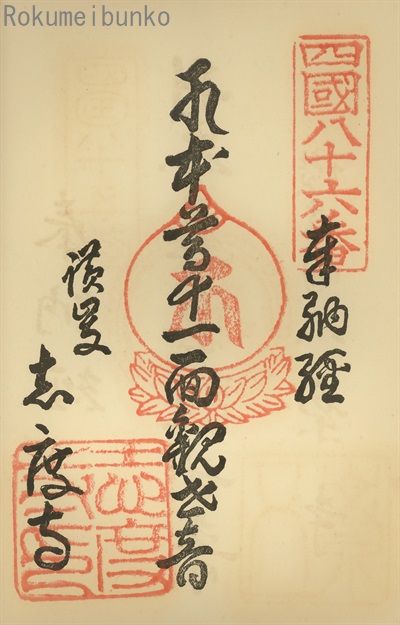 Rokumeibunko
四國八十六番
奉納經
本尊十一面觀世音
讃
志度寺